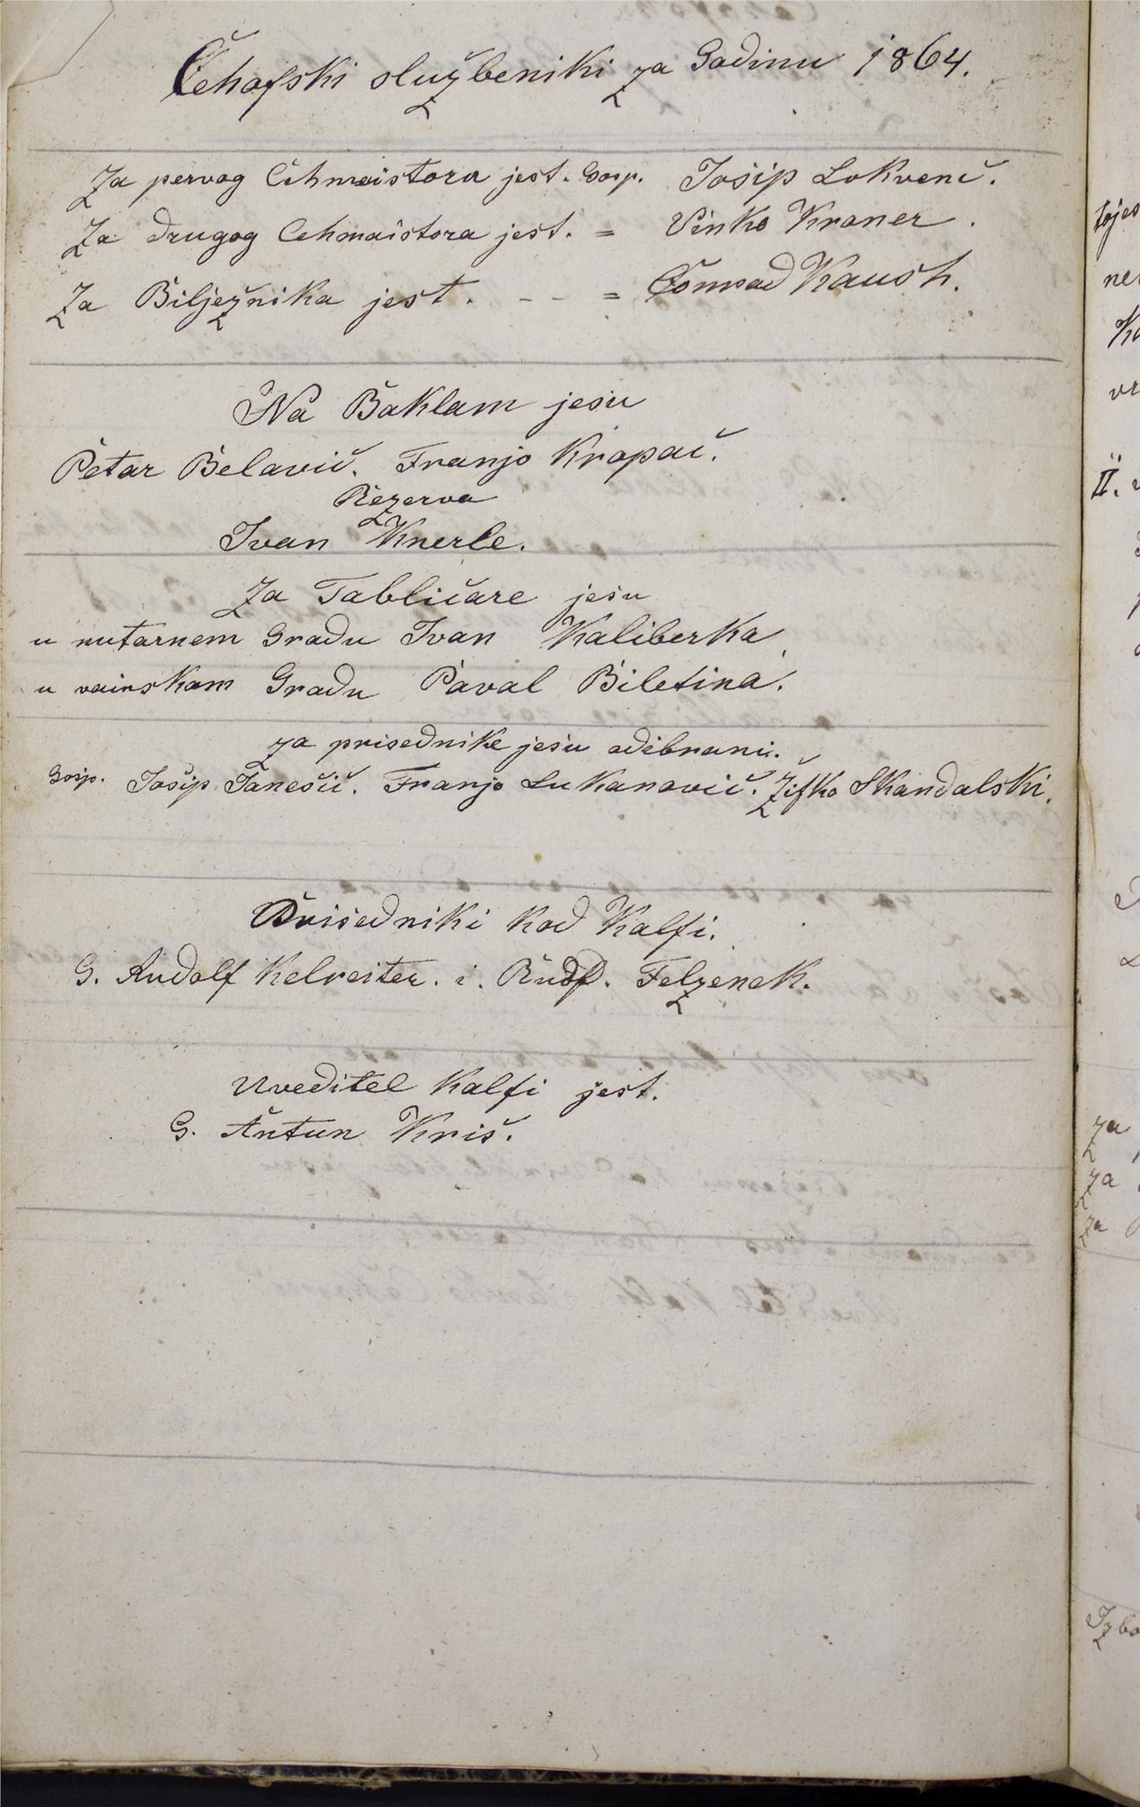 Čehofski službeniki za Godinu 1864.
Za pervog Cehmaistora jest. Gosp. Josip Lokvenc.
Za drugog Cehmaistora jest. = Vinko Kraner.
Za Bilježnika jest. - - = Conrad Kaush.
Na Baklam jesu
Petar Belavič. Franjo Kropač.
Rezerva
Ivan Knerle.
Za Tabličare jesu
u nutarnem Gradu Ivan Kaliberka,
u vainskam Gradu Paval Biletina.
za prisednike jesu odibrani.
Gosp. Josip Janešič. Franjo Lukanovič. Žifko Skandalski.
Prisedniki kod Kalfi.
G. Rudolf Kelreiter. i. Rudf. Felzenek.
Uveditel Kalfi jest.
G. Antun Kriš.
II.
za
za
za